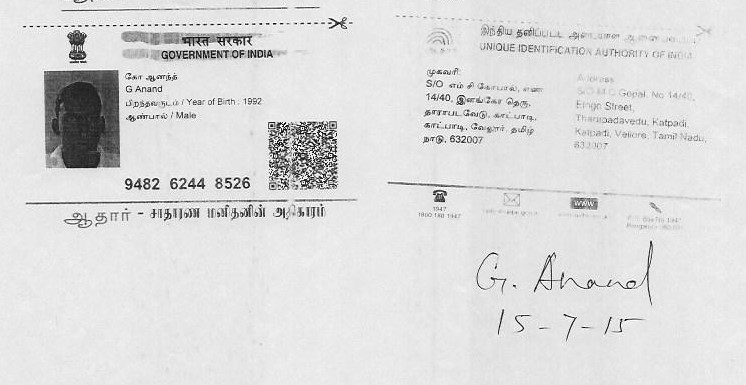 भारत सरकार
GOVERNMENT OF INDIA
கோ ஆனந்த்
G Anand
பிறந்தவருடம் / Year of Birth : 1992
ஆண்பால் / Male
9482 6244 8526
ஆதார் - சாதாரண மனிதனின் அதிகாரம்
இந்திய தனிப்பட்ட அடையாள
UNIQUE IDENTIFICATION AUTHORITY OF INDIA
முகவரி:
S/O எம் சி கோபால், எண்
14/40, இளங்கோ தெரு,
தாராபடவேடு, காட்பாடி,
காட்பாடி, வேலூர், தமிழ்
நாடு, 632007
Address
S/O M C Gopal, No 14/40,
Elngo Street,
Tharapadavedu, Katpadi,
Katpadi, Vellore, Tamil Nadu,
632007
1947
1800 180 1947
WWW
G. Anand
15-7-15